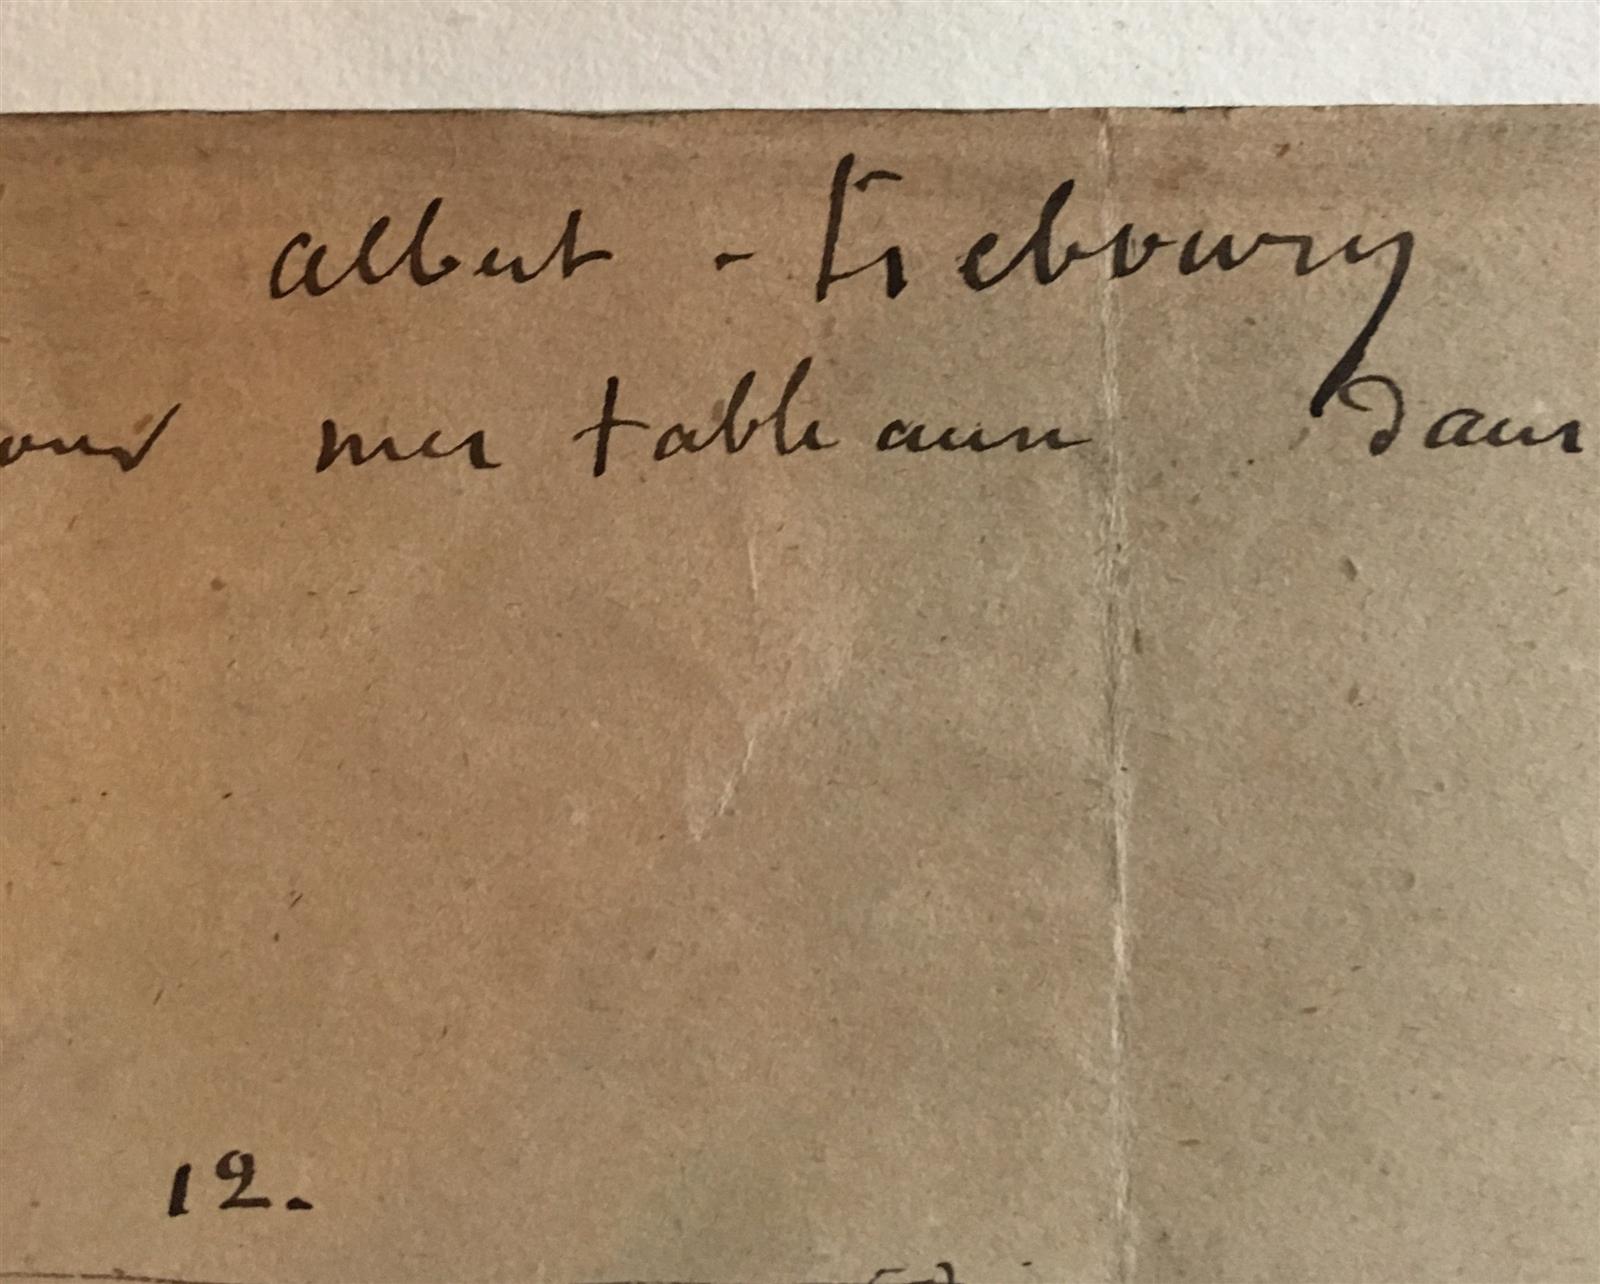 albert - Lebourg
mes tableaux dans
12.